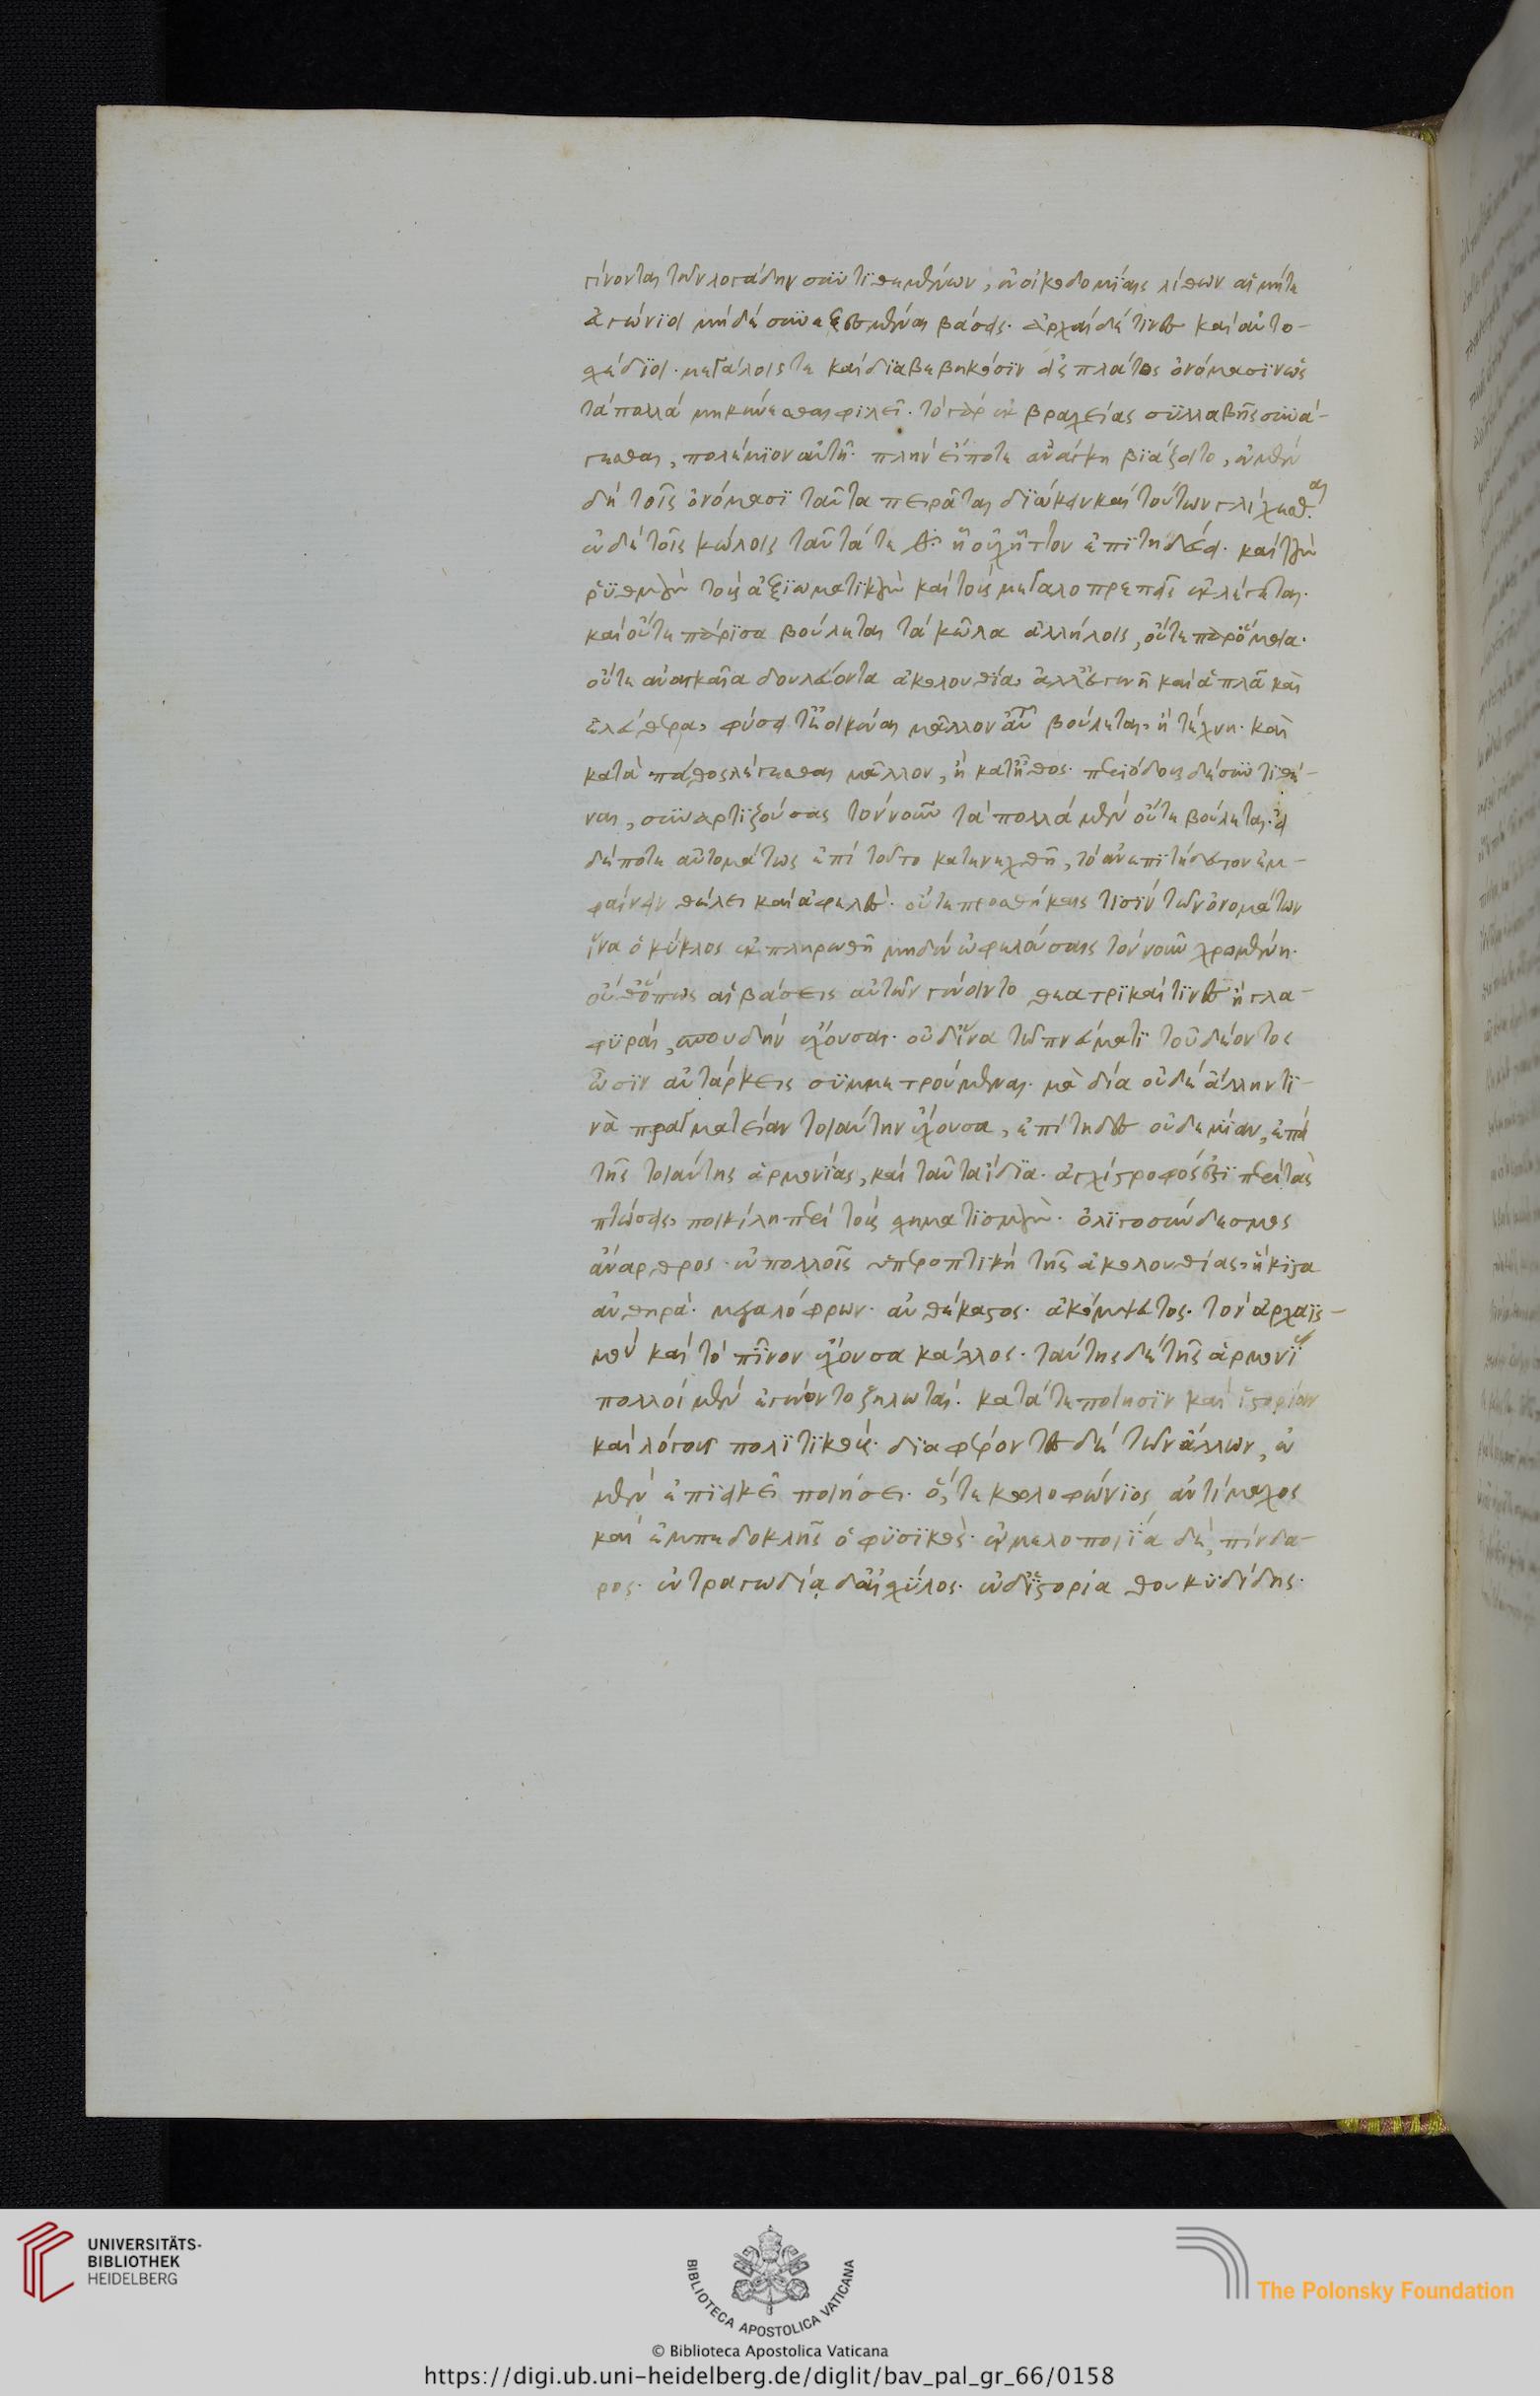 γίνονται τῶν λογάδην συντιθεμένων, ἐν οἰκοδομίαις λίθων αἱ μήτε
ἐγγώνιοι μηδὲ συνεξεσμέναι βάσεις. ἀργαὶ δέ τινες καὶ αὐτο-
σχέδιοι. μεγάλοις τε καὶ διαβεβηκόσιν εἰς πλάτος ὀνόμασιν ὡς
τὰ πολλὰ μηκύνεσθαι φιλεῖ. τὸ γὰρ ἐκ βραχείας συλλαβῆς συνά-
γεσθαι, πολέμιον αὐτῇ. πλὴν εἴποτε ἀνάγκη βιάζοιτο, ἐν μὲν
δὴ τοῖς ὀνόμασι ταῦτα πειρᾶται διώκειν καὶ τούτων γλίχεσθαι
ἐν δὲ τοῖς κώλοις ταῦτά τε ἧττον ἐπιτηδεύει. καὶ τοὺς
ῥυθμοὺς τοὺς ἀξιωματικοὺς καὶ τοὺς μεγαλοπρεπεῖς ἐκλέγεται.
καὶ οὔτε πάρισα βούλεται τὰ κῶλα ἀλλήλοις, οὔτε παρόμοια.
οὔτε ἀναγκαῖα δουλεύοντα ἀκολουθία, ἀλλ' εὐγενῆ καὶ ἁπλᾶ καὶ
ἐλεύθερα, φύσει τ' ἐοικέναι μᾶλλον αὐτὰ βούλεται, ἢ τέχνη. καὶ
κατὰ πάθος λέγεσθαι μᾶλλον, ἢ κατ' ἦθος. περιόδους δὲ συντιθέ-
ναι, συναρτιζούσας τὸν νοῦν τὰ πολλὰ μὲν οὔτε βούλεται. εἰ
δέ ποτε αὐτομάτως ἐπὶ τοῦτο κατενεχθῆ, τὸ ἀνεπιτήδευτον ἐμ-
φαίνειν θέλει καὶ ἀφελές. οὔτε προσθήκαις τισὶν τῶν ὀνομάτων
ἵνα ὁ κύκλος ἐκπληρωθῆ μηδὲν ὠφελούσαις τὸν νοῦν χρωμένη.
οὔθ' ὅπως αἱ βάσεις αὐτῶν γένοιντο θεατρικαί τινες ἢ γλα-
φυραὶ, σπουδὴν ἔχουσαι. οὐδ' ἵνα τῷ πνεύματι τοῦ δέοντος
ὦσιν αὐτάρκεις συμμετρούμεναι. μὰ δία οὐδὲ ἄλλην τι-
νὰ πραγματείαν τοιαύτην ἔχουσα, ἐπίτηδες οὐδεμίαν, ἐπὶ
τῆς τοιαύτης ἁρμονίας, καὶ ταῦτα ἴδια. ἀγχίστροφός ἐστι περὶ τὰς
πτώσεις, ποικίλη περὶ τοὺς σχηματισμοὺς. ὀλιγοσύνδεσμος
ἄναρθρος. ἐν πολλοῖς ὑπεροπτικὴ τῆς ἀκολουθίας, ἥκιστα
ἀνθηρά. μεγαλόφρων. αὐθέκαστος. ἀκόμψευτος. τὸν ἀρχαϊσ-
μὸν καὶ τὸ πῖνον ἔχουσα κάλλος. ταύτης δὲ τῆς ἁρμονίας
πολλοὶ μὲν ἐγένοντο ζηλωταὶ. κατά τε ποίησιν καὶ ἱστορίαν
καὶ λόγους πολιτικούς. διαφέροντες δὲ τῶν ἄλλων, ἐν
μὲν ἐπικῆ ποιήσει. ὅ, τε κολοφώνιος ἀντίμαχος
καὶ ἐμπεδοκλῆς ὁ φυσικός. ἐν μελοποιΐα δὲ, πίνδα-
ρος. ἐν τραγωδία δ' αἰσχύλος. ἐν δ' ἱστορία θουκυδίδης.
UNIVERSITÄTS-
BIBLIOTHEK
HEIDELBERG
BIBLIOTECA APOSTOLICA VATICANA
The Polonsky Foundation
© Biblioteca Apostolica Vaticana
https://digi.ub.uni-heidelberg.de/diglit/bav_pal_gr_66/0158